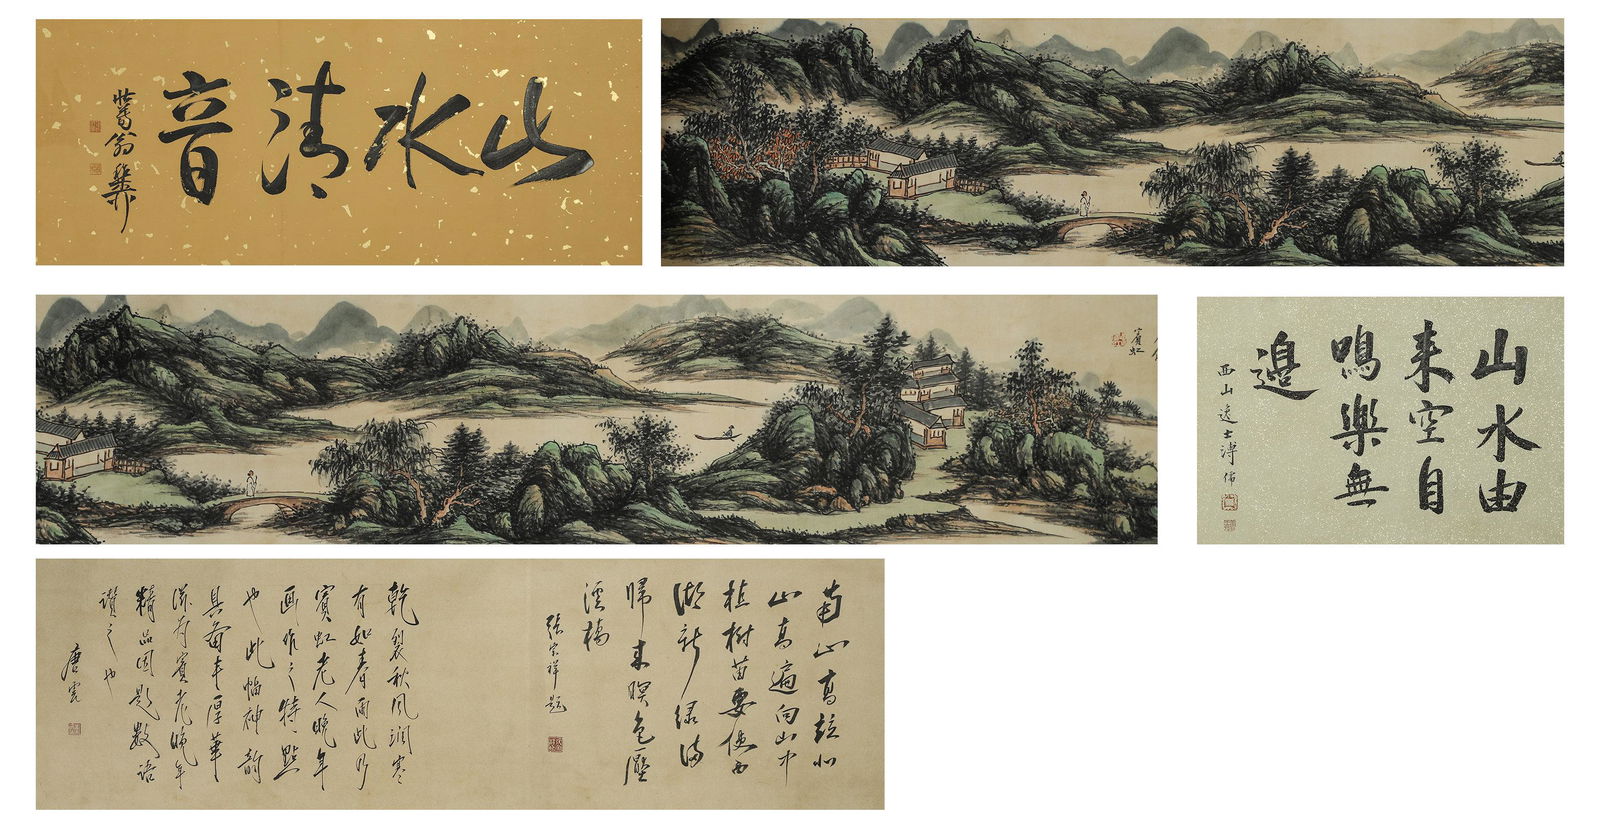 山水清音
壯暮翁稚柳
賓虹
山水由
来空自
鳴樂無
邊
西山逸士溥儒
南山高接北
山高遍向山中
植樹苗要使西
湖新綠滿
歸来暝色壓
溪橋
張宗祥題
乾裂秋風潤處
有如春雨此乃
賓虹老人晚年
画作之特點
也此幅神韻
具備丰厚華
滋為賓老晚年
精品因題數語
讚之也
唐雲